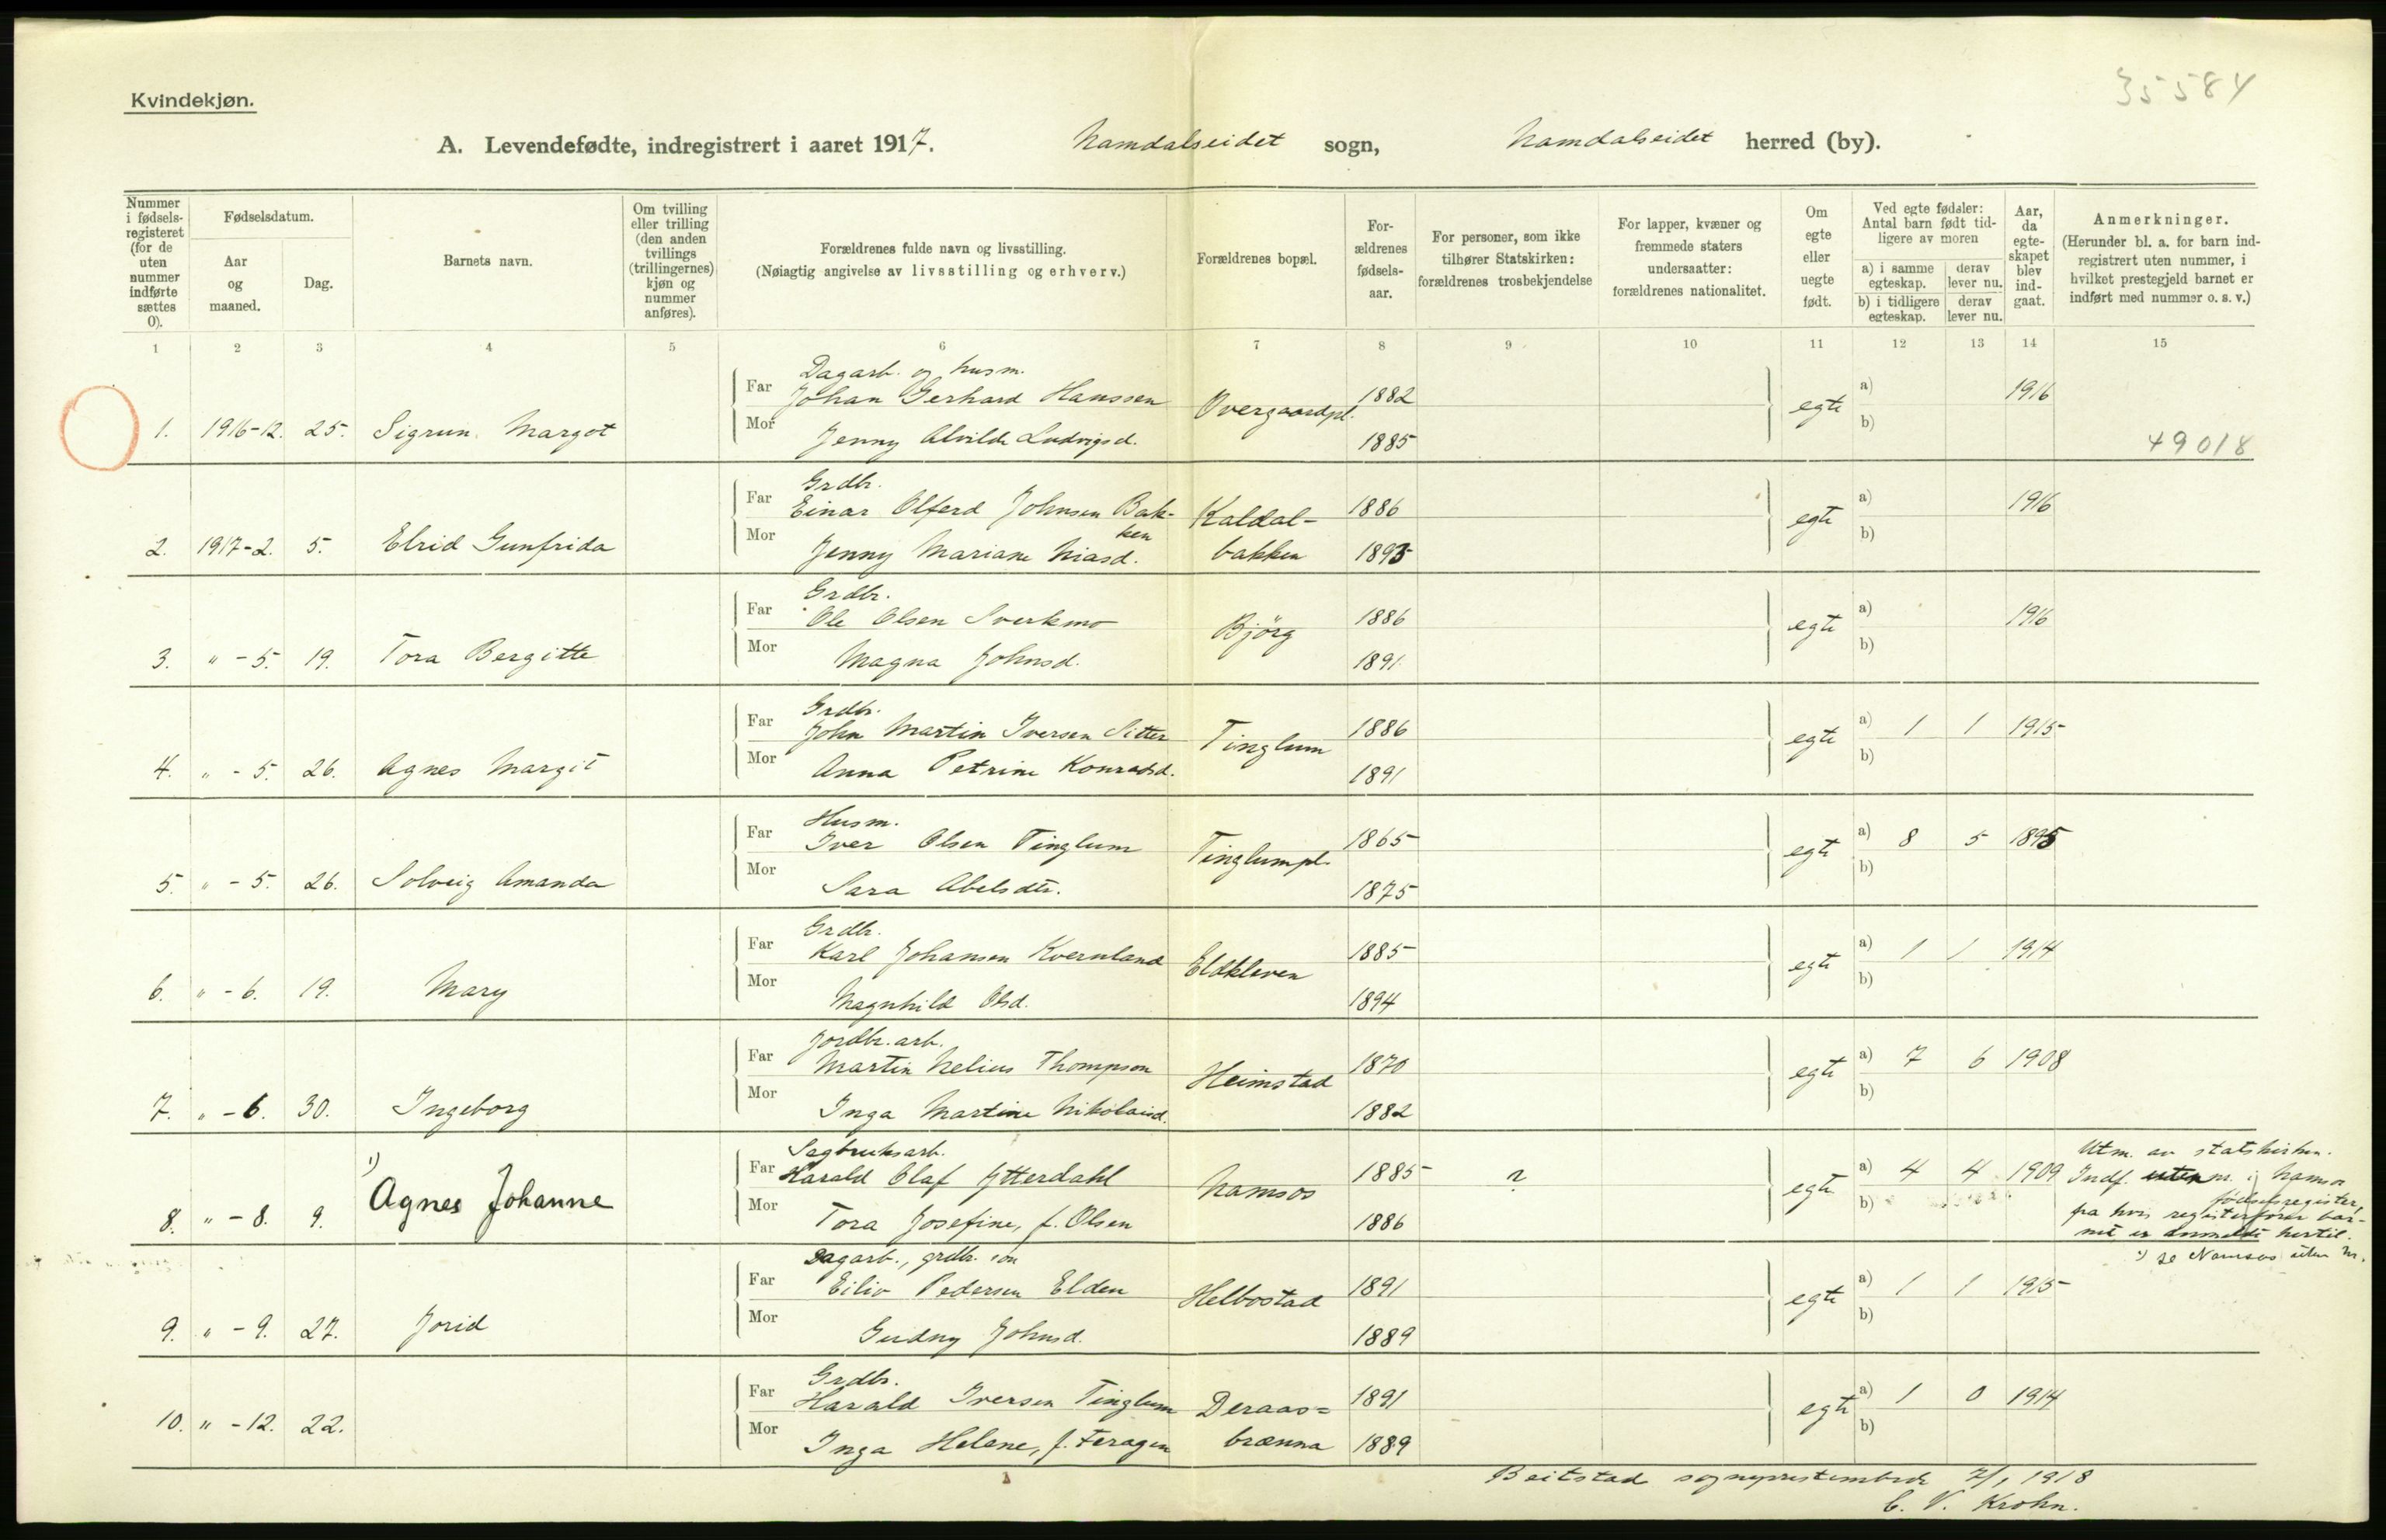 35584
Kvindekjøn.
A. Levendefødte, indregistrert i aaret 1917. Namdalseidet sogn, Namdalseidet herred (by).
Nummer i fødsels-registeret (for de uten nummer indførte sættes 0).
Fødselsdatum.
Aar og maaned.
Dag.
Barnets navn.
Om tvilling eller trilling (den anden tvillings (trillingernes) kjøn og nummer anføres).
Forældrenes fulde navn og livsstilling.
(Nøiagtig angivelse av livsstilling og erhverv.)
Forældrenes bopæl.
For-ældrenes fødsels-aar.
For personer, som ikke tilhører Statskirken: forældrenes trosbekjendelse
For lapper, kvæner og fremmede staters undersaatter: forældrenes nationalitet.
Om egte eller uegte født.
Ved egte fødsler: Antal barn født tid-ligere av moren
a) i samme egteskap.
derav lever nu.
b) i tidligere egteskap.
derav lever nu.
Aar, da egte-skapet blev ind-gaat.
Anmerkninger.
(Herunder bl. a. for barn ind-registrert uten nummer, i hvilket prestegjeld barnet er indført med nummer o. s. v.)
1 2 3 4 5 6 7 8 9 10 11 12 13 14 15
Dagarb. og husm.
Far Johan Gerhard Hanssen 1882 a) 1916
1. 1916-12. 25. Sigrun Margot Overgaardpl. egte
Mor Jenny Alvilde Ludvigsd. 1885 b) 49018
Grdbr.
Far Einar Olferd Johnsen Bak-ken Kaldal- 1886 a) 1916
2. 1917-2. 5. Elrid Gunfrida egte
Mor Jenny Mariane Niasd. bakken 1895 b)
Grdbr.
Far Ole Olsen Sverkmo 1886 a) 1916
3. " - 5. 19. Tora Bergitte Bjørg egte
Mor Magna Johnsd. 1891 b)
Grdbr.
Far John Martin Iversen Sitter 1886 a) 1 1 1915
4. " - 5. 26. Agnes Margit Tinglum egte
Mor Anna Petrine Konradsd. 1891 b)
Husm.
Far Iver Olsen Tinglum 1865 a) 8 5 1895
5. " - 5. 26. Solveig Amanda Tinglumpl. egte
Mor Sara Abelsdtr. 1875 b)
Grdbr.
Far Karl Johansen Kvernland 1885 a) 1 1 1914
6. " - 6. 19. Mary Eldkleven egte
Mor Magnhild Olsd. 1894 b)
Jordbr. arb.
Far Martin Nelius Thompson 1870 a) 7 6 1908
7. " - 6. 30. Ingeborg Heimstad egte
Mor Inga Martine Nikolaisd. 1882 b)
Sagbruksarb. Utm. av statskirken.
Far Harald Olaf Ytterdahl 1885 ? a) 4 4 1909 Indf. uten nr. i Namsos
8. " - 8. 9. 1) Agnes Johanne Namsos egte fødselsregister,
Mor Tora Josefine, f. Olsen 1886 b) fra hvis registerfører bar-
net er anmeldt hertil.
1) se Namsos uten nr.
Dagarb., grdbr. søn
Far Eiliv Pedersen Elden 1891 a) 1 1 1915
9. " - 9. 27. Jorid Helbostad egte
Mor Gudny Johnsd. 1889 b)
Grdbr.
Far Harald Iversen Tinglum Deraas= 1891 a) 1 0 1914
10. " - 12. 22. egte
Mor Inga Helene, f. Feragen brænna 1889 b)
Beitstad sogneprestembede 2/1 1918
C. V. Krohn.